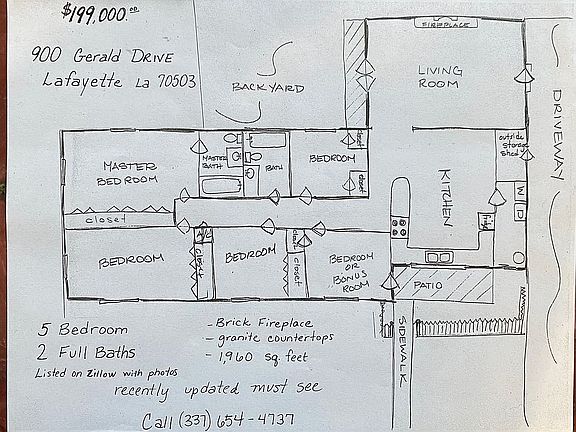 $199,000.00
900 Gerald DRIVE
Lafayette La 70503
BACKYARD
FIREPLACE
LIVING
ROOM
DRIVEWAY
MASTER
BEDROOM
MASTER
BATH
BATH
BEDROOM
closet
closet
outside
storage
shed
KITCHEN
W
D
closet
BEDROOM
closet
BEDROOM
closet
closet
BEDROOM
OR
BONUS
ROOM
PATIO
SIDEWALK
5 Bedroom
2 Full Baths
Listed on Zillow with photos
- Brick Fireplace
- granite countertops
- 1,960 sq. feet
recently updated must see
Call (337) 654-4737